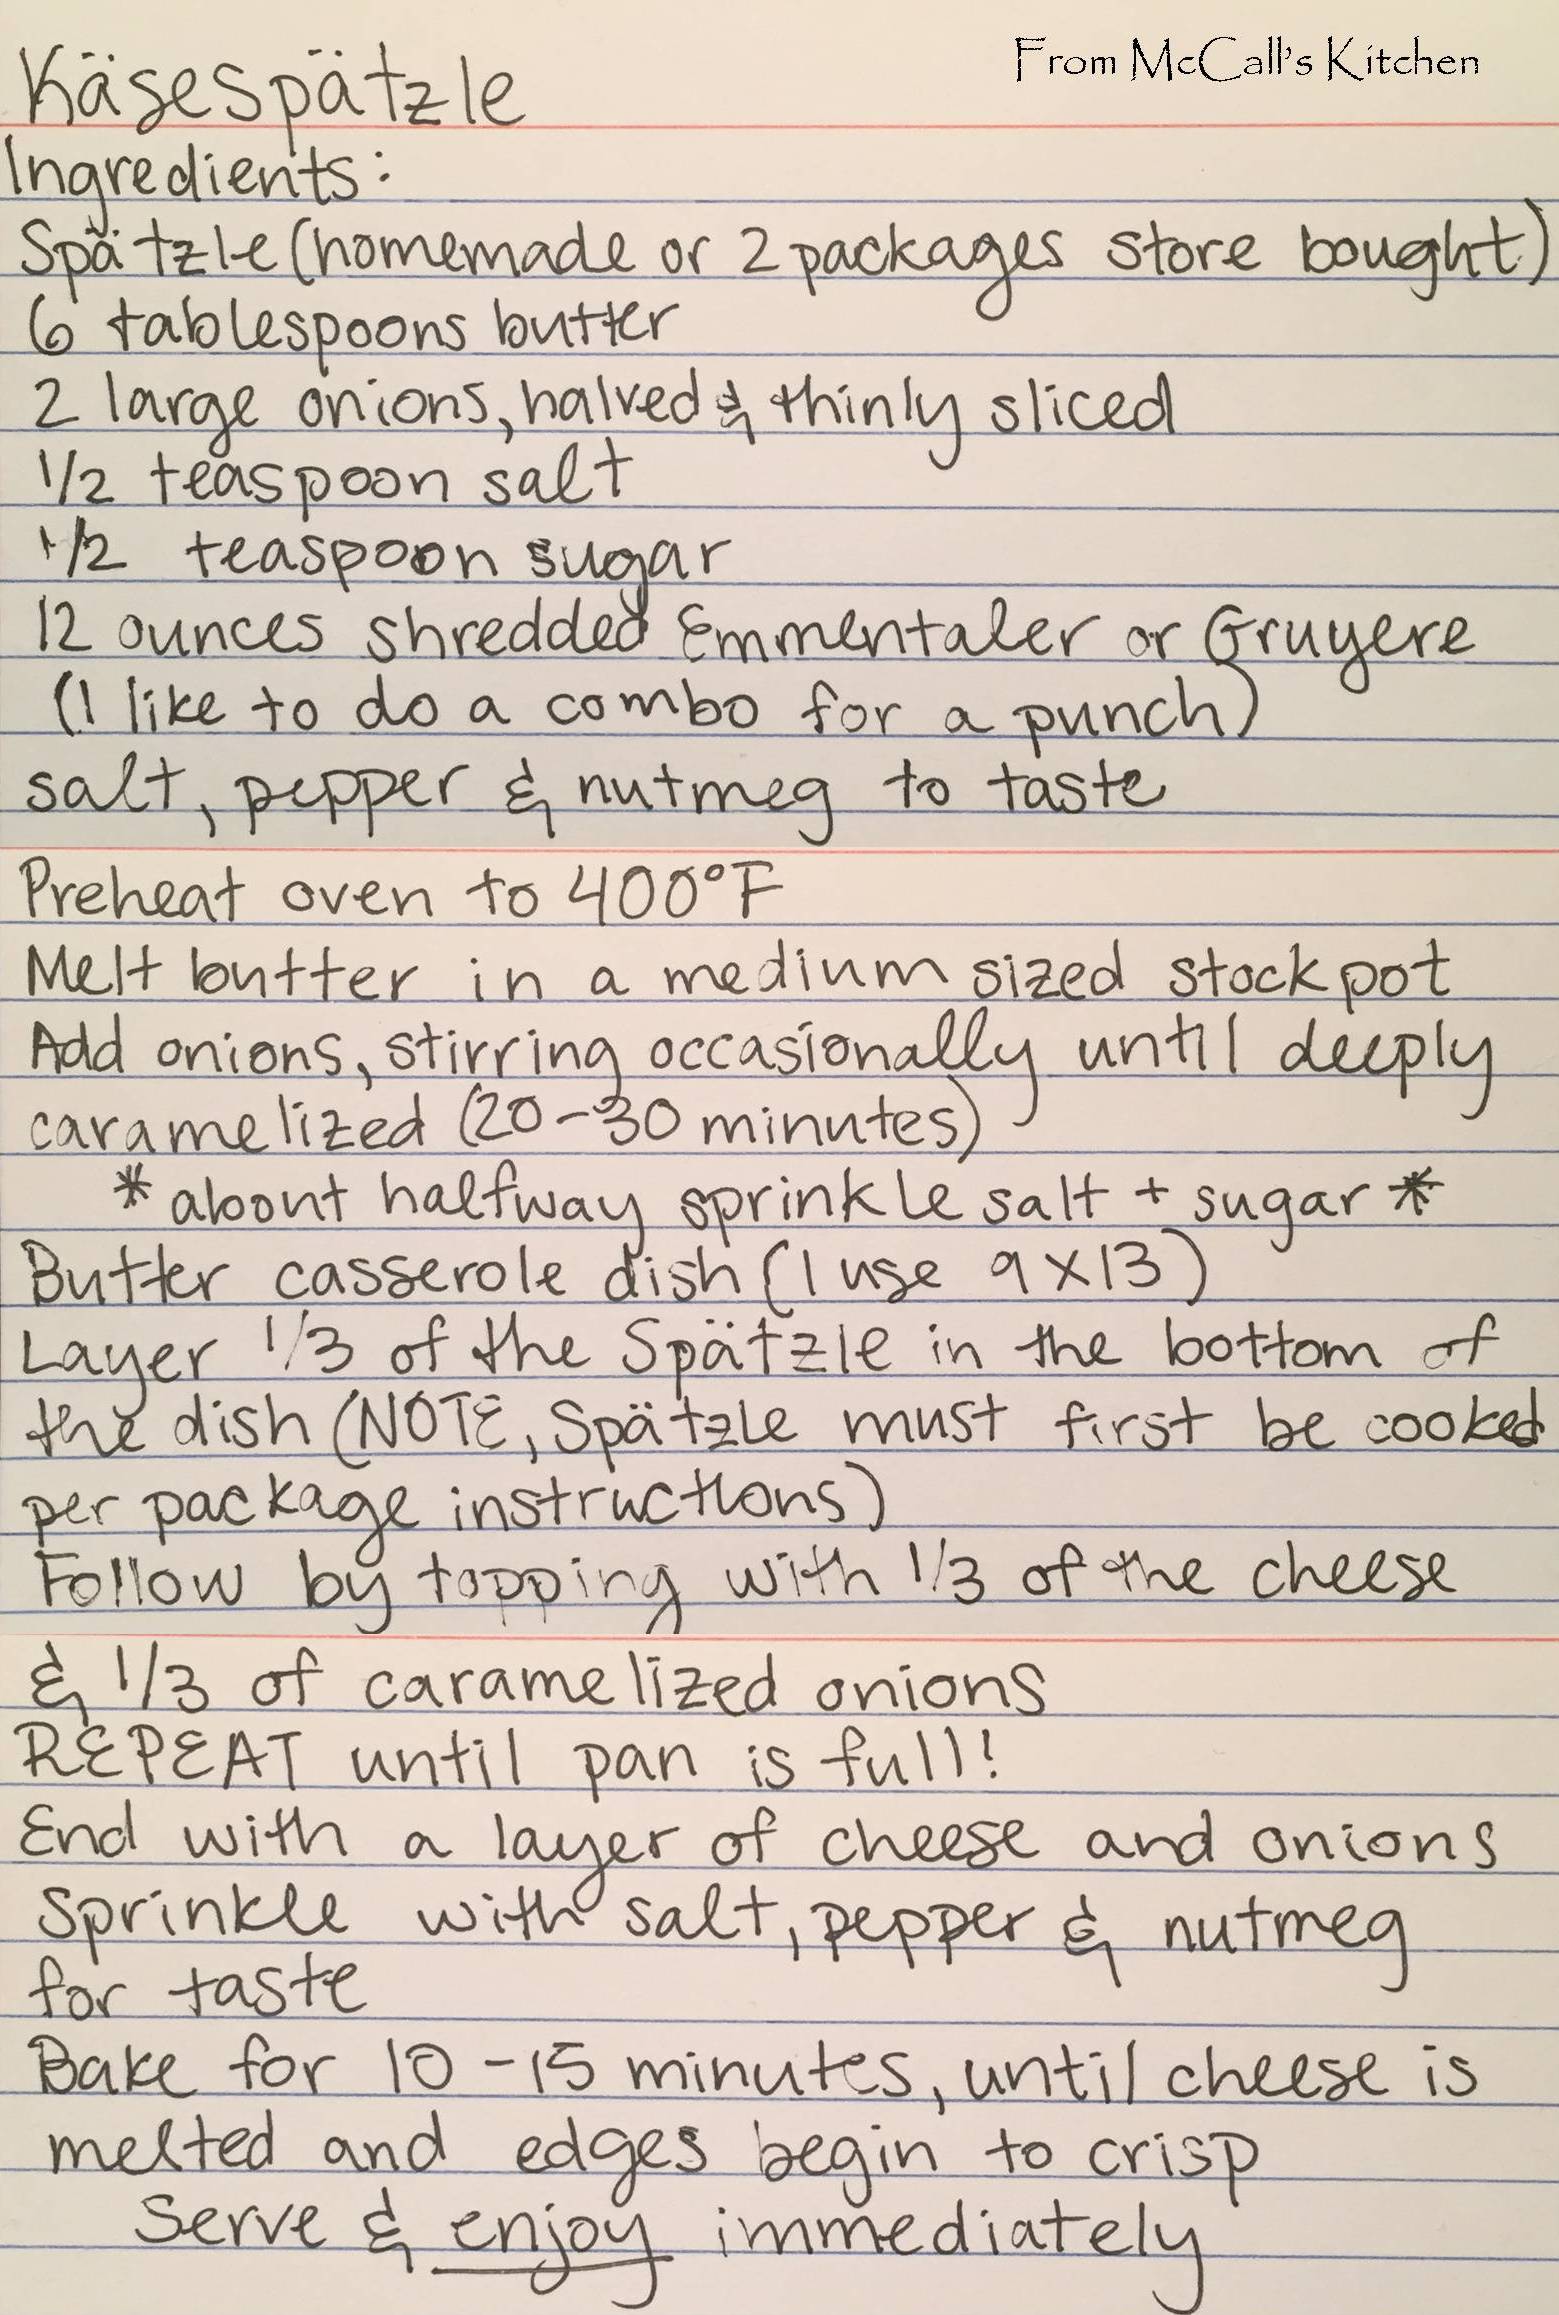 From McCall's Kitchen
Käsespätzle
Ingredients:
Spätzle (homemade or 2 packages store bought)
6 tablespoons butter
2 large onions, halved & thinly sliced
1/2 teaspoon salt
1/2 teaspoon sugar
12 ounces shredded Emmentaler or Gruyere
(I like to do a combo for a punch)
salt, pepper & nutmeg to taste
Preheat oven to 400°F
Melt butter in a medium sized stock pot
Add onions, stirring occasionally until deeply
caramelized (20-30 minutes)
*about halfway sprinkle salt + sugar*
Butter casserole dish (I use 9x13)
Layer 1/3 of the Spätzle in the bottom of
the dish (NOTE, Spätzle must first be cooked
per package instructions)
Follow by topping with 1/3 of the cheese
& 1/3 of caramelized onions
REPEAT until pan is full!
End with a layer of cheese and onions
Sprinkle with salt, pepper & nutmeg
for taste
Bake for 10-15 minutes, until cheese is
melted and edges begin to crisp
Serve & enjoy immediately